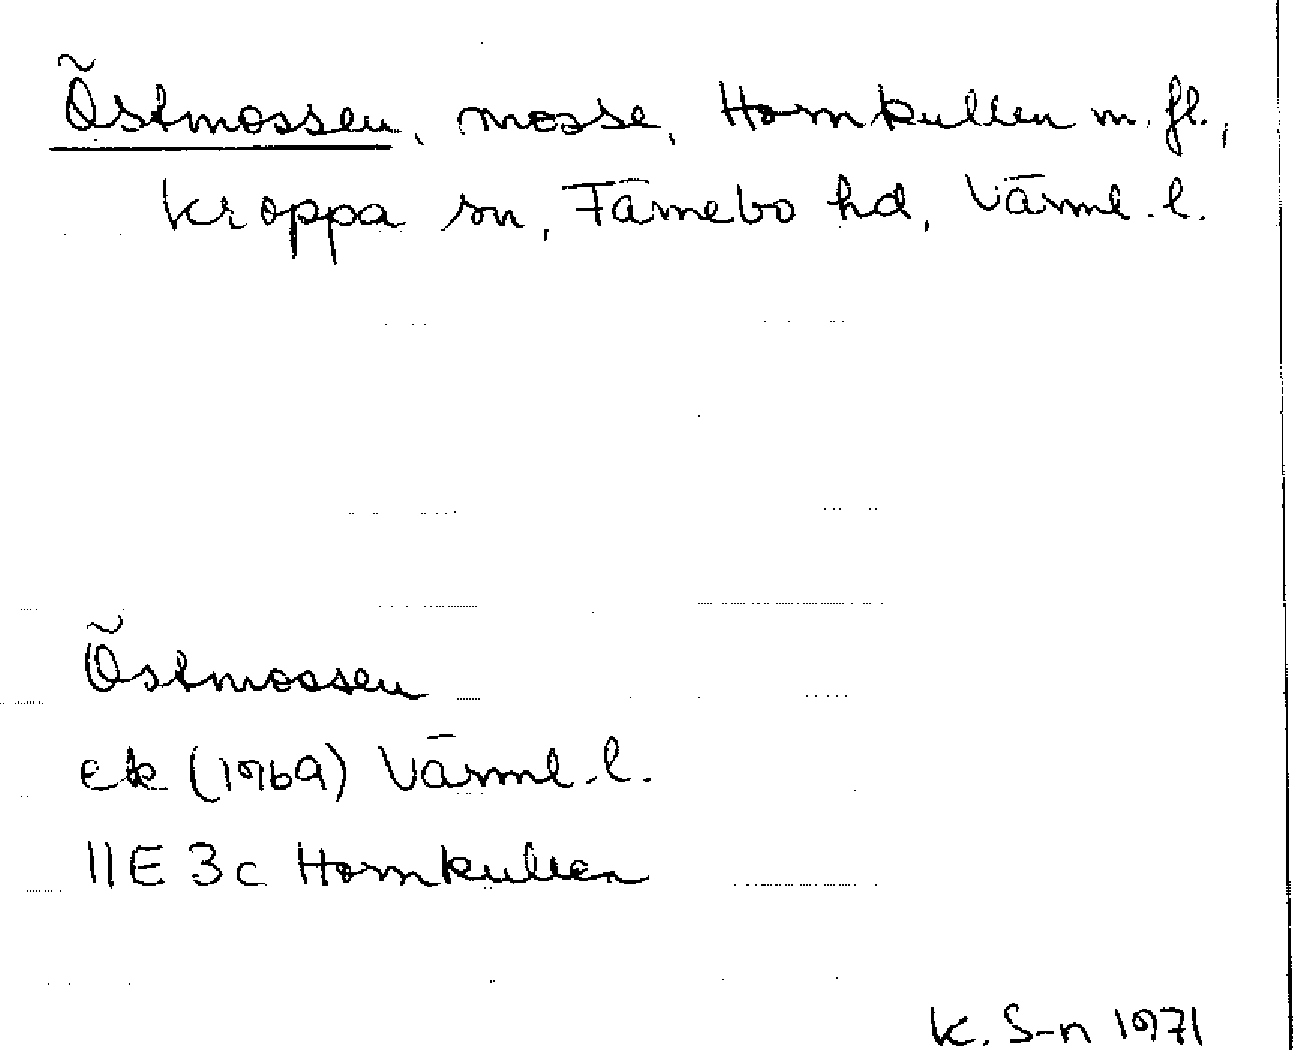 Östmossen, mosse, Hornkullen m. fl.,
Kroppa sn, Färnebo hd, Värml. l.
Östmossen
ek (1969) Värml. l.
11E 3c Hornkullen
K. S-n 1971